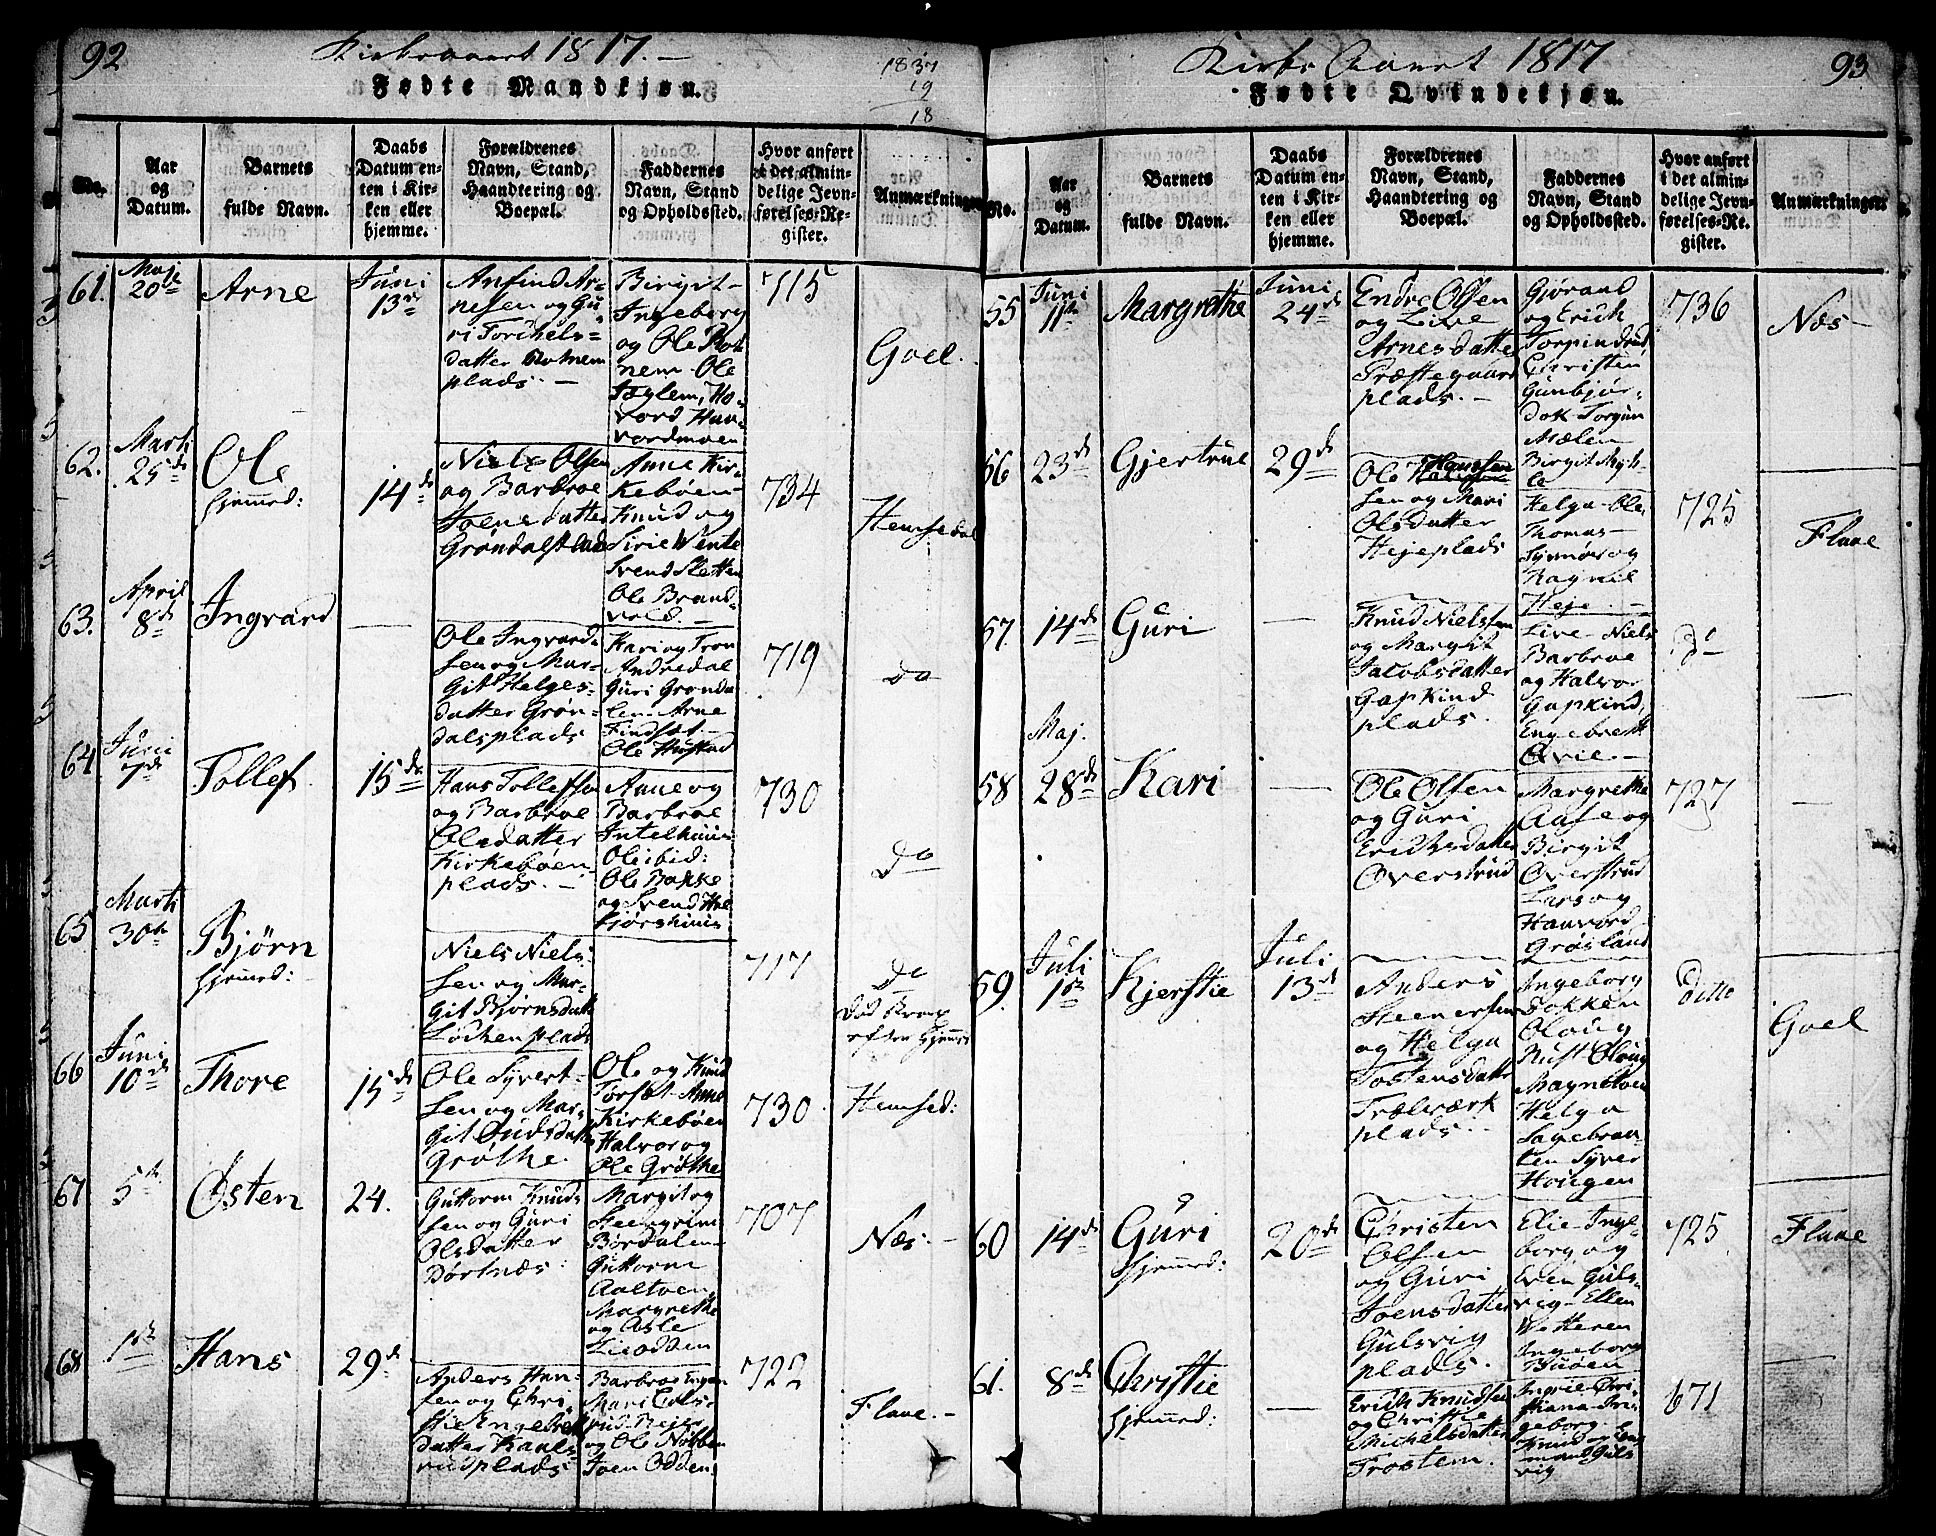 92
Kirkeaaret 1817. —
1837
19
18
Fødte Mandkjøn.
No.
Aar
og
Datum.
Barnets
fulde Navn.
Daabs
Datum en-
ten i Kir-
ken eller
hjemme.
Forældrenes
Navn, Stand,
Haandtering og
Boepæl.
Faddernes
Navn, Stand
og Opholdssted.
Hvor anført
i det almin-
delige Jevn-
førelses-Re-
gister.
Anmærkninger
61.
Maji
20de
Arne
Juni
13de
Anfind Ar-
nesen og Gu-
ri Torchels-
datter Rotnem
plads. —
Birgit -
Ingeborg
og Ole Rot
nem - Ole
Ho-
vord Hau-
vordmoen
715
Goel.
62.
Marti
25de
Ole
hjemmed:
14de
Niels Olsen
og Barbroe
Joensdatter
Grøndalsplads
Anne Kir-
kebøen -
Knud og
Sirie Vente
Svend Sletten
Ole Brand-
vold. -
734
Hemsedal
63.
April
8de
Ingvard
—
Ole Ingvard-
sen og Mar-
git Helges-
datter Grøn-
dalsplads
Kari og Tron
Andredal
Guri Grønda
len - Arne
Findset -
Ole Hustad
719
do
64
Juni
7de
Tollef.
15de
Hans Tollefsen
og Barbroe
Olsdatter
Kirkebøen-
plads. —
Anne og
Barbroe
Intelhuus
Ole ibid:
Ole Bakke
og Svend
730
do
65
Marti
30te
Bjørn
hjemmed:
Niels Niel-
sen og Mar-
git Bjørnsdatt
Løchenplads
717
do
66
Juni
10de
Thore
15de
Ole Syvert-
sen og Mar-
git Knudsdatt
Grøthe.
Ole og Knud
Torset - Anne
Kirkebøen
Halvor og
Ole Grøthe
730
Hemsed:
67
5te
Østen
24.
Guttorm Knud-
sen og Guri
Olsdatter
Dørtnæs:
Margit og
Steengrim
Børdalen -
Guttorm
Aaltven,
Margrethe
og Asle
Lieodden
707
Næs. —
68
1ste
Hans
29de
Anders Han-
sen og Chri-
stie Engebrett
datter Kauls-
rudplads
Barbroe
Mari
og Ole
Joen Odden.
722
Flaae. —
93
Kirke Aaret 1817
Fødte Qvindekjøn.
No.
Aar
og
Datum.
Barnets
fulde Navn.
Daabs
Datum en-
ten i Kir-
ken eller
hjemme.
Forældrenes
Navn, Stand,
Haandtering og
Boepæl.
Faddernes
Navn, Stand
og Opholdssted.
Hvor anført
i det almin-
delige Jevn-
førelses-Re-
gister.
Anmærkninger
55
Juni
11te
Margrethe
Juni
24de
Endre Olsen
og Live
Arnesdatter
Præstegaard
plads. —
Gjørand
og Erich
Torpindrud
Christen
Gunbjør-
dok - Torgun
Aslen
736
Næs -
56
23de
Gjertrue
29de
Ole Hansen
sen og Mari
Olsdatter
Hejeplads
Birgit Myh-
le
Helga - Ole,
Thomas -
Synnøve og
Ragnil
Heje. —
725
Flaae
57.
14de
Guri
—
Knud Nielsen
og Margit
Jacobsdatter
Gapkind
plads.
Live - Niels
Barbroe
og Halvor
Gapkind,
Engebrett
Ørie. —
do
—
58
Maj.
28de
Kari
—
Ole Olsen
og Guri
Erichsdatter
Øverstrud
Margrethe
Aase og
Birgit
Øverstrud
Lars og
Hauvord -
Grøsland
727
—
59.
Juli
1ste
Kjerstie
Juli
13de
Anders
Steenersen
og Helga
Tostensdatt
Trælværk
plads. -
Ingeborg
Tokken
Oloug
Rust - Oloug
Magnetven
Helga
Lagebraa-
ten Syver
Hougen
ditto
Goel
60
14de
Guri
hjemmed:
20de
Christen
Olsen
og Guri
Joensdatter
Gulsvig
plads.
Elie - Inge-
borg og
Even Guls-
vig - Ellen
Ingeborg
725
Flaae
61.
8de
Christie
hjemmed:
—
Erich Knudsen
og Christie
Michelsdatter
Trostem.
Ingrie Chri-
stiana - In-
geborg -
Guls-
vig
671
—